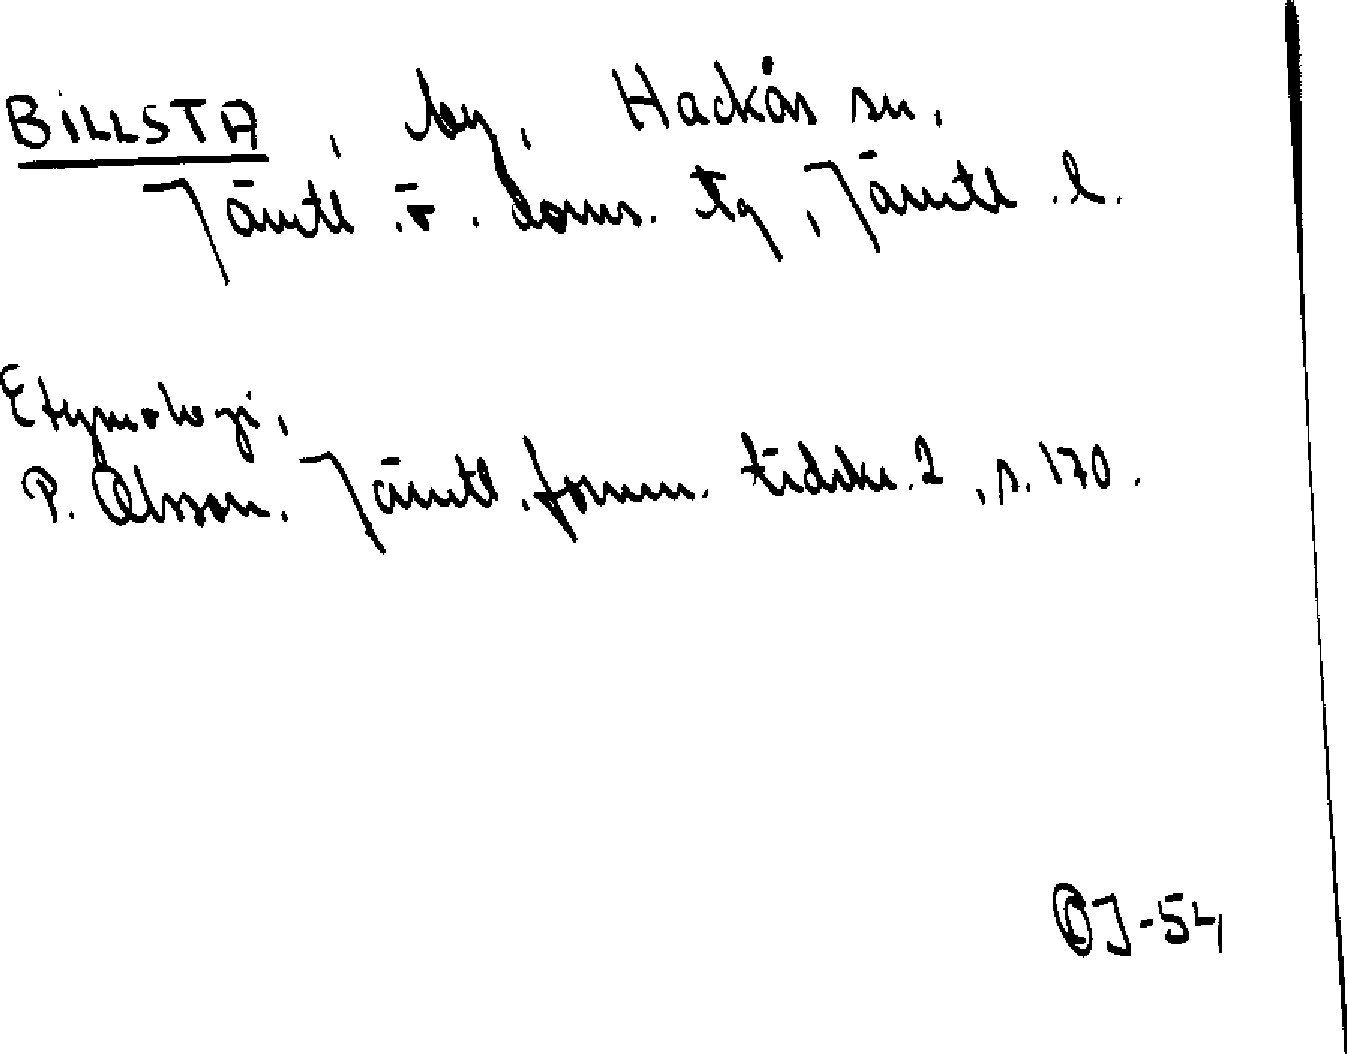 BILLSTA, by, Hackås sn,
Jämtl. ö. doms. tg, Jämtl. l.
Etymologi,
P. Olsson. Jämtl. fornm. tidskr. 2, s. 170.
OJ-54